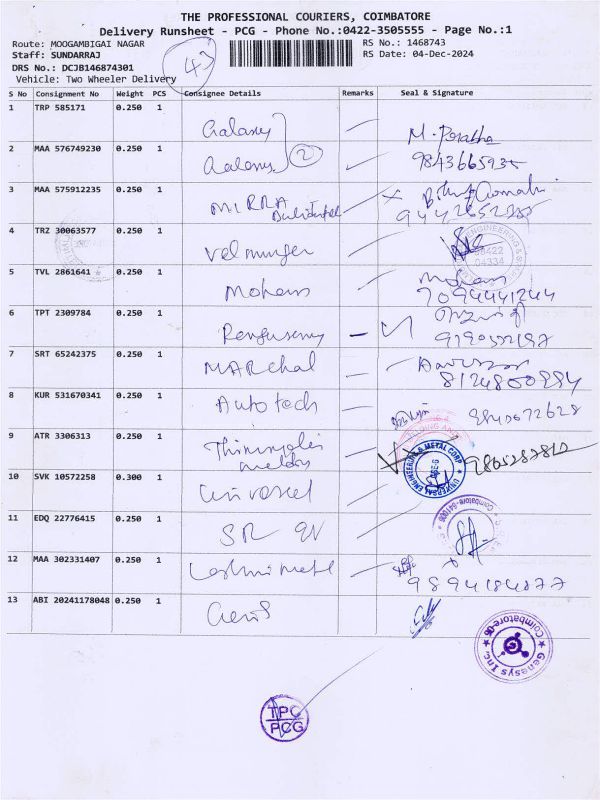 THE PROFESSIONAL COURIERS, COIMBATORE
Delivery Runsheet - PCG - Phone No.:0422-3505555 - Page No.:1
Route: MOOGAMBIGAI NAGAR
RS No.: 1468743
Staff: SUNDARRAJ
RS Date: 04-Dec-2024
DRS No.: DCJB146874301
Vehicle: Two Wheeler Delivery
43
S No Consignment No Weight PCS Consignee Details Remarks Seal & Signature
1 TRP 585171 0.250 1
Galaxy
2 MAA 576749230 0.250 1
Galaxy 2
9843665935
3 MAA 575912235 0.250 1
MIRRA
4 TRZ 30063577 0.250 1
Velmurugan
ENGINEERING &
98422
04334
5 TVL 2861641 0.250 1
Mohan
Mohan
7094441244
6 TPT 2309784 0.250 1
7 SRT 65242375 0.250 1
MARchal
8124800994
8 KUR 531670341 0.250 1
Autotech
9840072628
9 ATR 3306313 0.250 1
UNIVERSAL ENGINEERING & METAL CORP
CBE-6
9865287812
10 SVK 10572258 0.300 1
Universal
11 EDQ 22776415 0.250 1
SR
Coimbatore-641006
12 MAA 302331407 0.250 1
Lakshmi metal
9894184077
13 ABI 20241178048 0.250 1
Genesys Inc.
Coimbatore-06
TPC
PCG